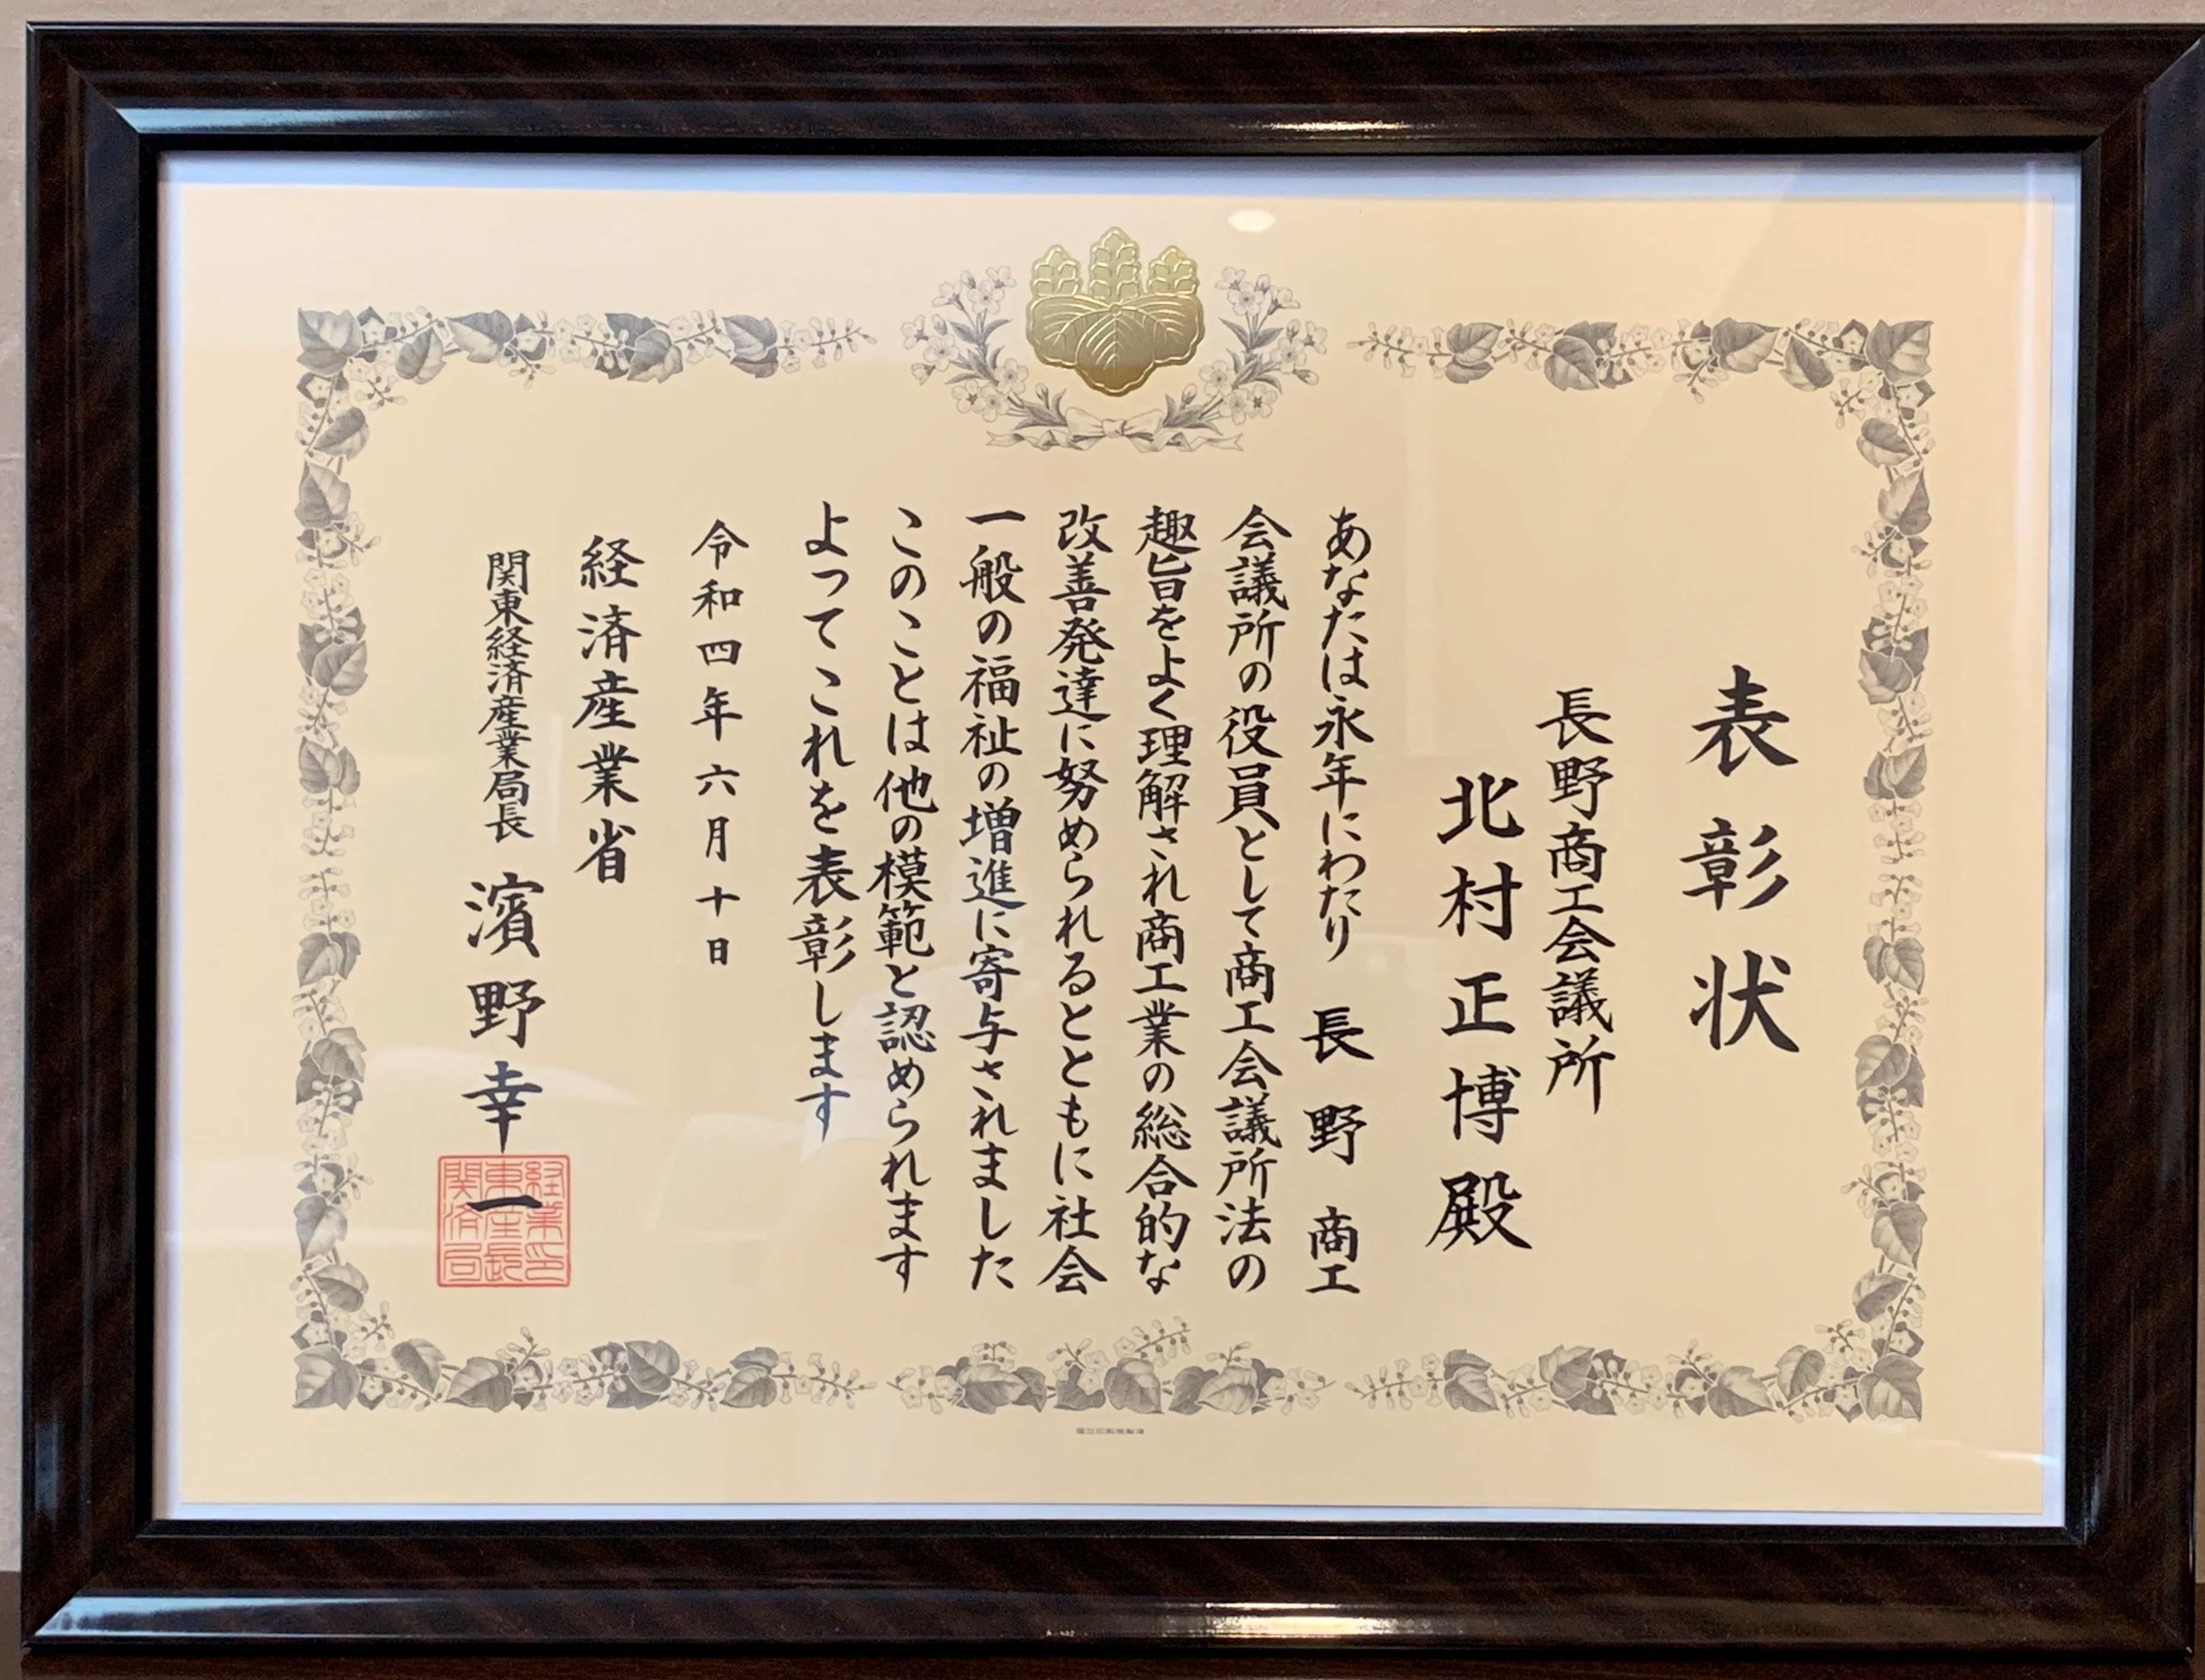 表彰状
長野商工会議所
北村正博殿
あなたは永年にわたり長野商工
会議所の役員として商工会議所法の
趣旨をよく理解され商工業の総合的な
改善発達に努められるとともに社会
一般の福祉の増進に寄与されました
このことは他の模範と認められます
よってこれを表彰します
令和四年六月十日
経済産業省
関東経済産業局長 濱野幸一